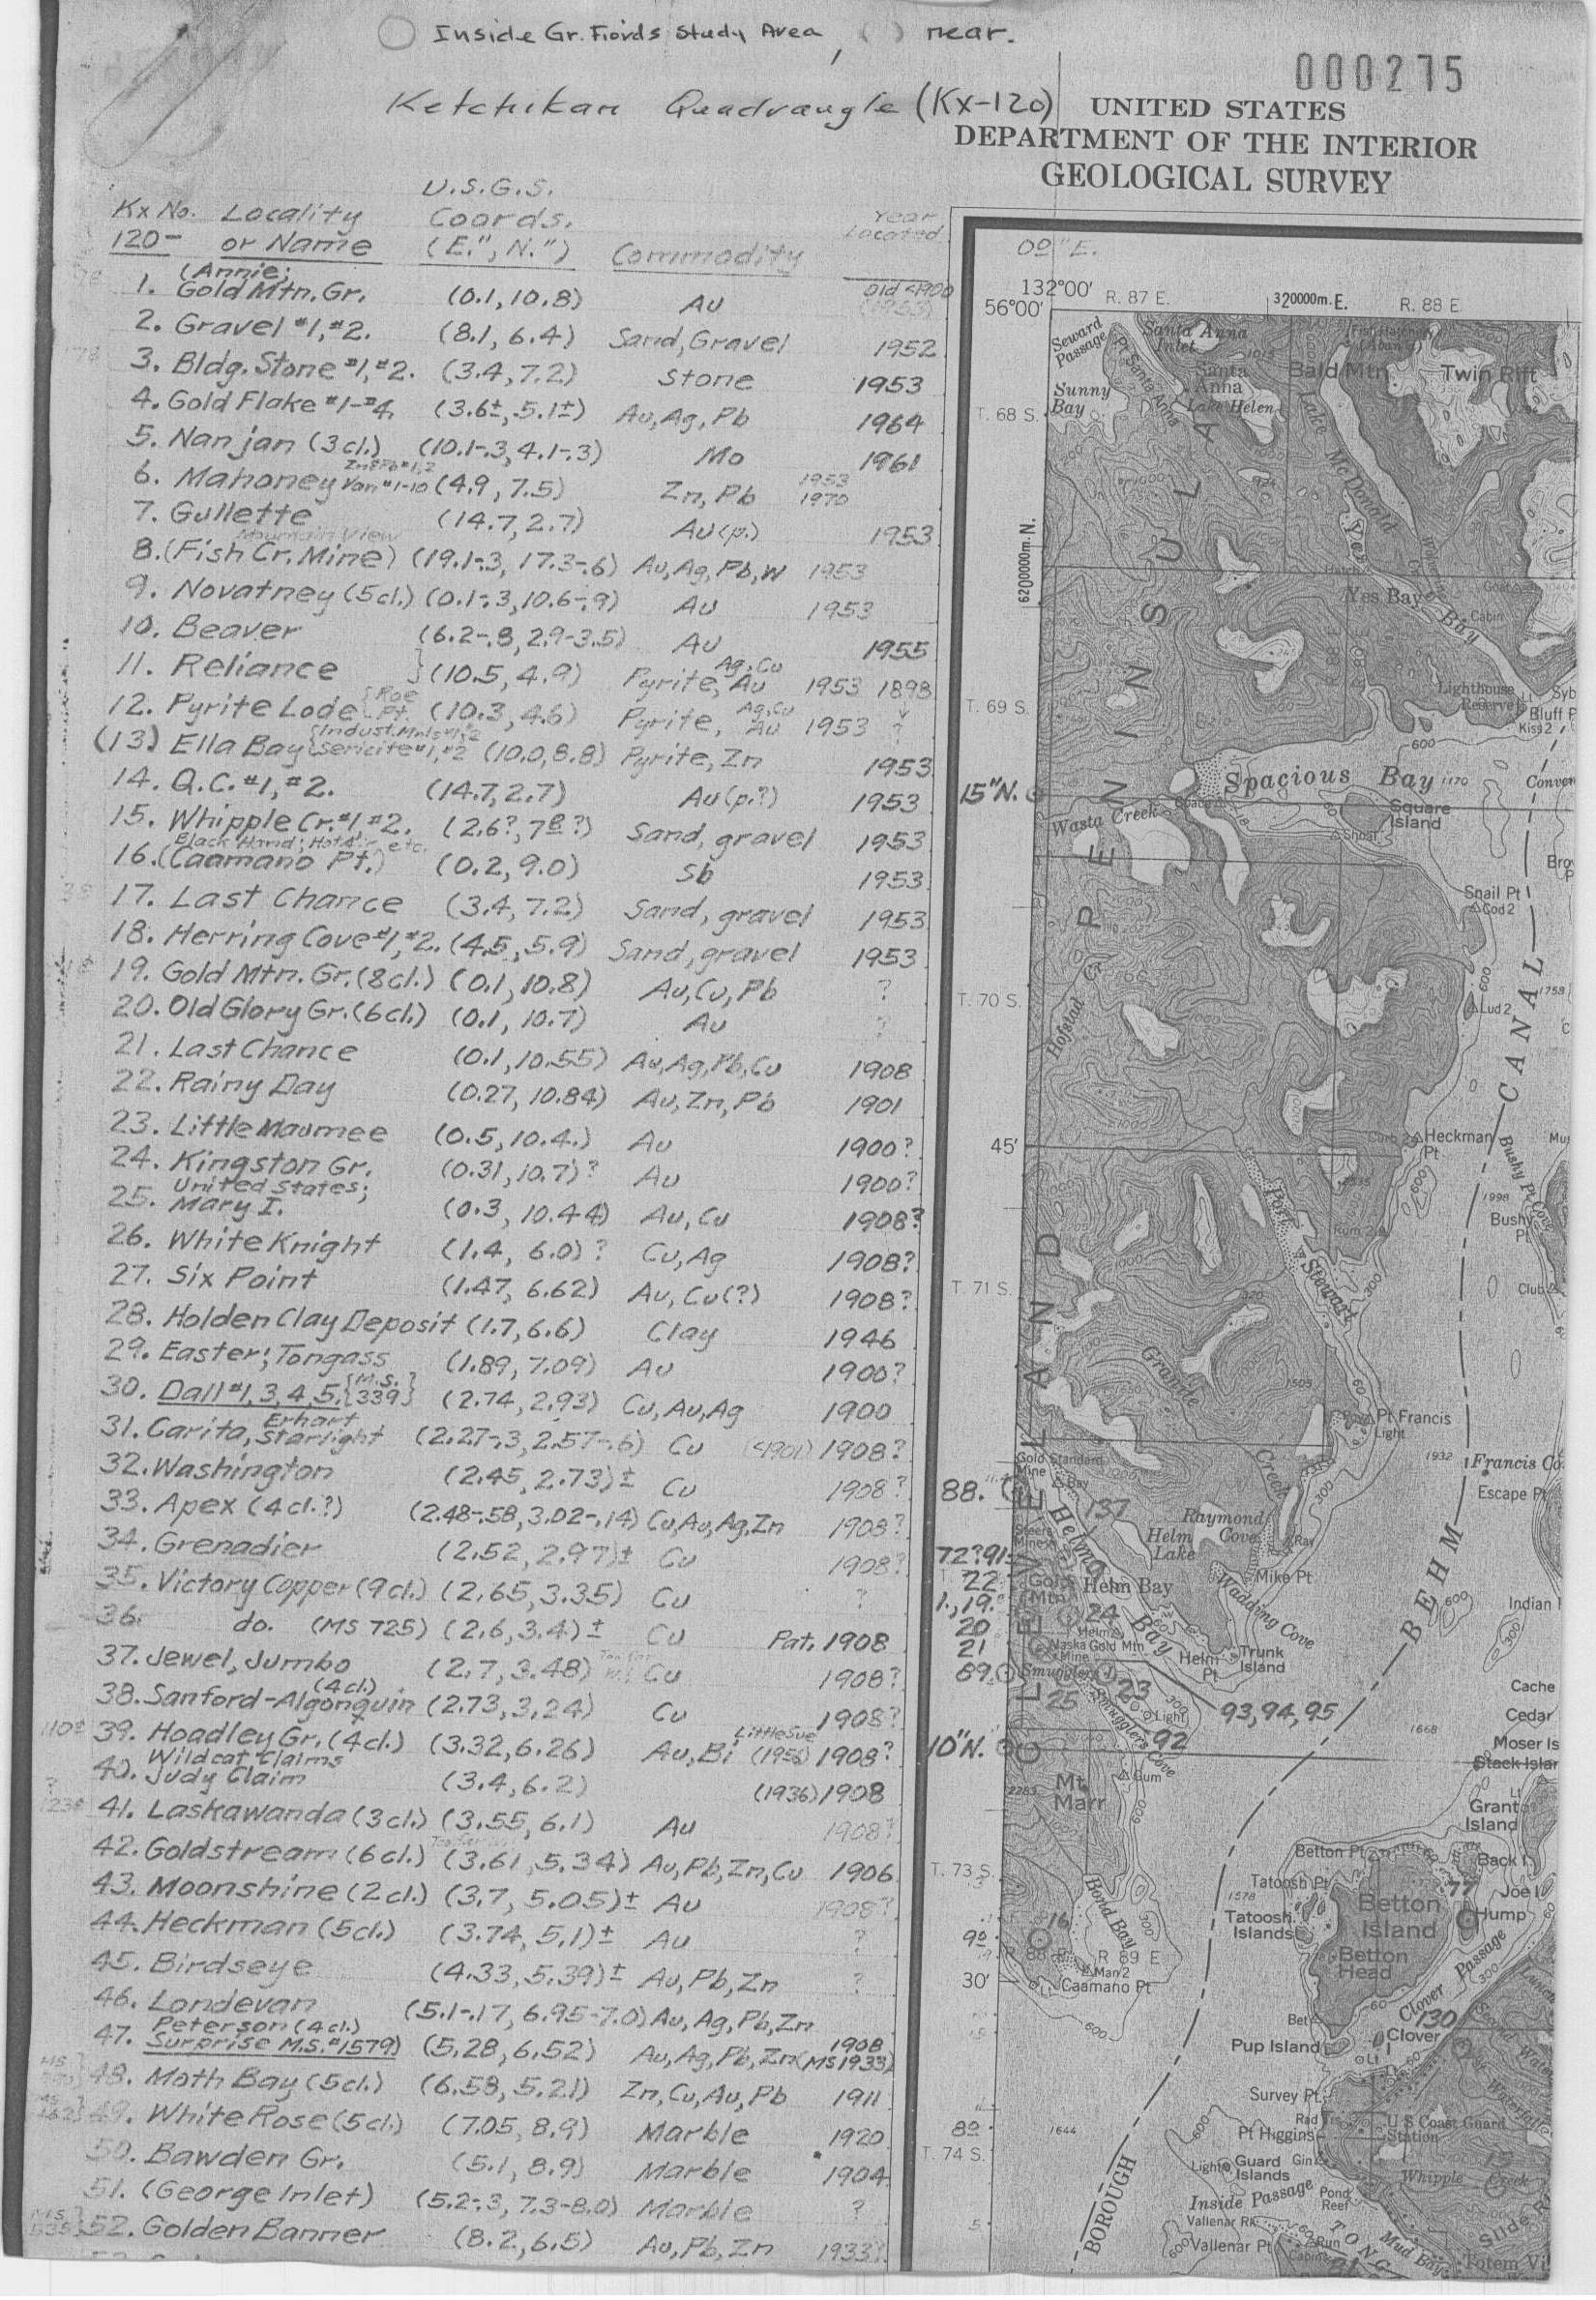 Inside Gr. Fiords Study Area, ( ) near.
000275
Ketchikan Quadrangle (Kx-120)
UNITED STATES
DEPARTMENT OF THE INTERIOR
GEOLOGICAL SURVEY
Kx No. 120- Locality or Name U.S.G.S. Coords. (E.", N.") Commodity Year Located
1. (Annie; Gold Mtn. Gr. (0.1, 10.8) Au old <1900 (1953)
2. Gravel #1, #2. (8.1, 6.4) Sand, Gravel 1952
3. Bldg. Stone #1, #2. (3.4, 7.2) Stone 1953
4. Gold Flake #1-#4. (3.6±, 5.1±) Au, Ag, Pb 1964
5. Nanjan (3 cl.) (10.1-.3, 4.1-.3) Mo 1961
6. Mahoney Zn & Pb #1,2 Van #1-10 (4.9, 7.5) Zn, Pb 1953 1970
7. Gullette (14.7, 2.7) Au (p.) 1953
Mountain View
8. (Fish Cr. Mine) (19.1-.3, 17.3-.6) Au, Ag, Pb, W 1953
9. Novatney (5 cl.) (0.1-.3, 10.6-.9) Au 1953
10. Beaver (6.2-.8, 2.9-3.5) Au 1955
11. Reliance (10.5, 4.9) Pyrite, Au Ag, Cu 1953 1898
12. Pyrite Lode {Roe Pt. (10.3, 4.6) Pyrite, Au Ag, Cu 1953 ?
(13.) Ella Bay {Indust. Mnls #1, #2 Sericite #1, #2 (10.0, 8.8) Pyrite, Zn 1953
14. Q.C. #1, #2. (14.7, 2.7) Au (p.?) 1953
15. Whipple Cr. #1 #2. (2.6?, 7.8?) Sand, gravel 1953
Black Hand; Hot Air, etc.
16. (Caamano Pt.) (0.2, 9.0) Sb 1953
17. Last Chance (3.4, 7.2) Sand, gravel 1953
18. Herring Cove #1, #2. (4.5, 5.9) Sand, gravel 1953
19. Gold Mtn. Gr. (8 cl.) (0.1, 10.8) Au, Cu, Pb ?
20. Old Glory Gr. (6 cl.) (0.1, 10.7) Au ?
21. Last Chance (0.1, 10.55) Au, Ag, Pb, Cu 1908
22. Rainy Day (0.27, 10.84) Au, Zn, Pb 1901
23. Little Maumee (0.5, 10.4.) Au 1900?
24. Kingston Gr. (0.31, 10.7)? Au 1900?
25. United States; Mary I. (0.3, 10.44) Au, Cu 1908?
26. White Knight (1.4, 6.0)? Cu, Ag 1908?
27. Six Point (1.47, 6.62) Au, Cu (?) 1908?
28. Holden Clay Deposit (1.7, 6.6) Clay 1946
29. Easter; Tongass (1.89, 7.09) Au 1900?
30. Dall #1, 3, 4, 5. {M.S. 339} (2.74, 2.93) Cu, Au, Ag 1900
31. Carita, Erhart Starlight (2.27-.3, 2.57-.6) Cu (<1901) 1908?
32. Washington (2.45, 2.73)± Cu 1908?
33. Apex (4 cl.?) (2.48-.58, 3.02-.14) Cu, Au, Ag, Zn 1908?
34. Grenadier (2.52, 2.97)± Cu 1908?
35. Victory Copper (9 cl.) (2.65, 3.35) Cu ?
36. do. (MS 725) (2.6, 3.4)± Cu Pat. 1908
37. Jewel, Jumbo (2.7, 3.48) Cu 1908?
38. Sanford-Algonquin (4 cl.) (2.73, 3.24) Cu 1908?
39. Hoadley Gr. (4 cl.) (3.32, 6.26) Au, Bi Little Sue (1956) 1908?
40. Wildcat Claims Judy Claim (3.4, 6.2) (1936) 1908
41. Laskawanda (3 cl.) (3.55, 6.1) Au 1908?
42. Goldstream (6 cl.) (3.61, 5.34) Au, Pb, Zn, Cu 1906
43. Moonshine (2 cl.) (3.7, 5.05)± Au 1908?
44. Heckman (5 cl.) (3.74, 5.1)± Au ?
45. Birdseye (4.33, 5.39)± Au, Pb, Zn ?
46. Londevan (5.1-.17, 6.95-7.0) Au, Ag, Pb, Zn
47. Peterson (4 cl.) Surprise M.S. #1579) (5.28, 6.52) Au, Ag, Pb, Zn 1908 (MS 1933)
48. Moth Bay (5 cl.) (6.58, 5.21) Zn, Cu, Au, Pb 1911
49. White Rose (5 cl.) (7.05, 8.9) Marble 1920
50. Bawden Gr. (5.1, 8.9) Marble 1904
51. (George Inlet) (5.2-.3, 7.3-8.0) Marble ?
52. Golden Banner (8.2, 6.5) Au, Pb, Zn 1933?
0.0" E.
132°00' R. 87 E. 320000m. E. R. 88 E
56°00'
Seward Passage
Pt Santa Anna
Santa Anna Inlet
Santa Anna
Lake Helen
Bald Mtn
Twin Rift
Sunny Bay
T. 68 S.
Lake Mc Donald
6200000m. N.
Yes Bay
Yes Bay
Cabin
Lighthouse Reserve
Bluff P
Kiss 2
T. 69 S.
600
15" N.
Spacious Bay
1170
Conven
Square Island
Wasta Creek
Ghost
Snail Pt
Cod 2
T. 70 S.
Hofstad Cr
Lud 2
1758
CLEVELAND PENINSULA
BEHM CANAL
45'
Heckman Pt
Bushy Pt Cove
1998
Bushy Pt
Port Stewart
T. 71 S.
Club
Granite Creek
1505
Pt Francis
Light
Gold Standard Mine
Bay
1932
Francis Co
Escape Pt
88.
137
Helm Bay
Raymond Cove
Helm Lake
Ray
Mike Pt
Wadding Cove
72?91
22
1., 19.
20
21
89
Gold Mtn
Helm Bay
24
Alaska Gold Mtn Mine
Helm Pt
Trunk Island
Indian I
Smugglers
25
23
Light
Smugglers Cove
93, 94, 95
92
Cache
Cedar
1668
Moser Is
Stack Islan
10" N.
2283
Mt Marr
Gum
Lt
Grant Island
T. 73 S.
Betton Pt
Back I
Tatoosh Pt
1578
Tatoosh Islands
Betton Island
77
Joe I
Hump
Betton Head
Bond Bay
16
R 89 E
Man 2
Caamano Pt
30'
Clover Passage
130
Bet
Pup Island
Clover
Lt
Survey Pt
1644
Rad
Pt Higgins
U S Coast Guard Station
T. 74 S.
Light
Guard Islands
Gin
15
Whipple Creek
Inside Passage
Pond Reef
Vallenar Rk
Vallenar Pt
Run
Cabins
TONG
Mud Bay
Slide R
Totem Vi
81
BOROUGH